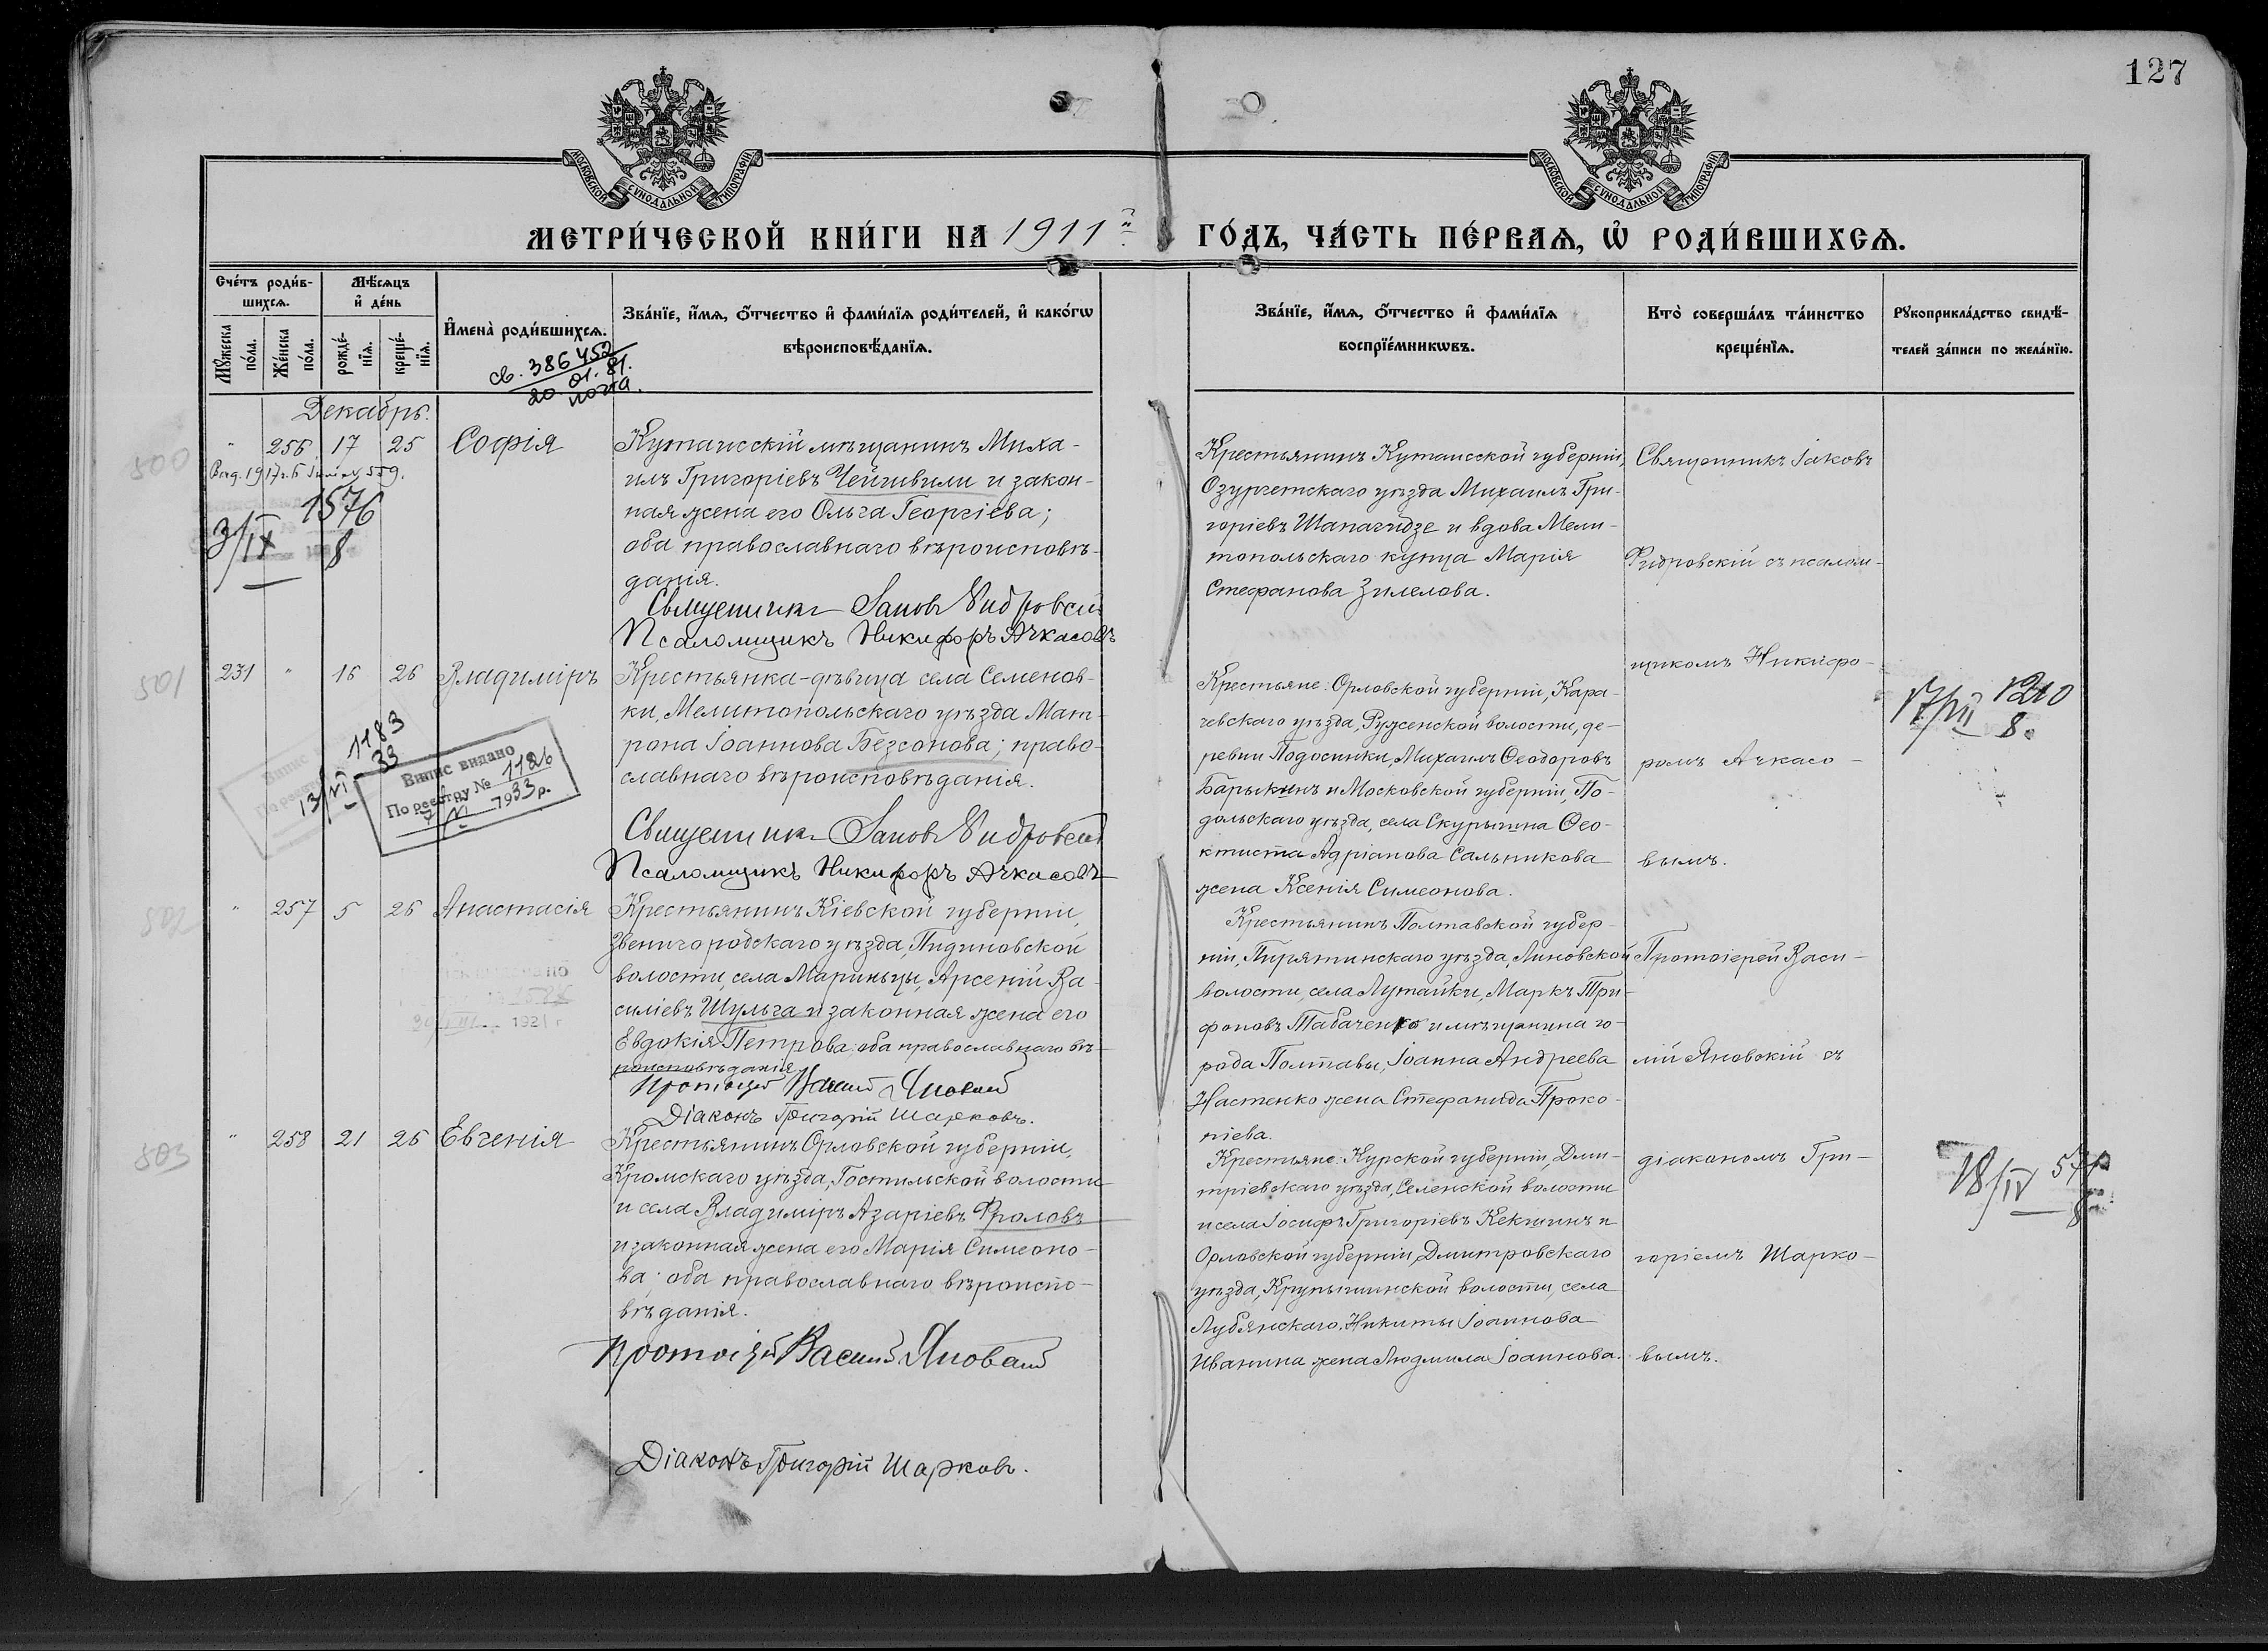 127
МОСКОВСКОЙ СѴНОДАЛЬНОЙ ТИПОГРАФІИ
МОСКОВСКОЙ СѴНОДАЛЬНОЙ ТИПОГРАФІИ
МЕТРИ́ЧЕСКОЙ КНИ́ГИ НА 1911й ГО́ДЪ, ЧА́СТЬ ПЕ́РВАѦ, Ѡ РОДИ́ВШИХСѦ.
Сче́тъ роди́в-
шихсѧ.
Мѣ́сѧцъ
и҆ де́нь
Мꙋ́жеска по́ла.
Же́нска по́ла.
рожде́-
нїѧ.
креще́-
нїѧ.
И҆мена̀ роди́вшихсѧ.
Зва́нїе, и҆́мѧ, ѻ҆́тчество и҆ фами́лїѧ роди́телей, и҆ како́гѡ
вѣроисповѣ́данїѧ.
Зва́нїе, и҆́мѧ, ѻ҆́тчество и҆ фами́лїѧ
воспрїе́мникѡвъ.
Кто̀ соверша́лъ та́инство
креще́нїѧ.
Рꙋкоприкла́дство свидѣ́-
телей за́писи по жела́нїю.
св. 386452
20.01.81.
почта.
Декабрь.
500
" 256 17 25 Софія
Выд. 1917 г. 6 Іюня № 559.
1576
3/IX 8
Кутаисскій мѣщанинъ Миха-
илъ Григоріевъ Чейшвили и закон-
ная жена его Ольга Георгіева;
оба православнаго вѣроисповѣ-
данія.
Священникъ Іаковъ Видровскій
Псаломщикъ Никифоръ Ачкасовъ
Крестьянинъ Кутаисской губерніи,
Озургетскаго уѣзда Михаилъ Гри-
горіевъ Шапагидзе и вдова Мели-
топольскаго купца Марія
Стефанова Зилелова.
Священникъ Іаковъ
Видровскій съ псалом-
щикомъ Никифо-
ромъ Ачкасо-
вымъ.
501
231 " 16 26 Владиміръ
1183
33
13/VI
Випис видано
По реєстру № 1126
7/VI 1933 р.
Крестьянка-дѣвица села Семенов-
ки, Мелитопольскаго уѣзда Мат-
рона Іоаннова Безсонова; право-
славнаго вѣроисповѣданія.
Священникъ Іаковъ Видровскій
Псаломщикъ Никифоръ Ачкасовъ
Крестьяне: Орловской губерніи, Кара-
чевскаго уѣзда, Руженской волости, де-
ревни Подосинки, Михаилъ Ѳеодоровъ
Барыкинъ и Московской губерніи, По-
дольскаго уѣзда, села Скурыгина Ѳео-
ктиста Адріанова Сальникова
жена Ксенія Симеонова.
17/VII 1210
8.
502
" 257 5 26 Анастасія
1921 г
Крестьянинъ Кіевской губерніи,
Звенигородскаго уѣзда, Пидиновской
волости, села Мариньцы, Арсеній Ва-
силіевъ Шульга и законная жена его
Евдокія Петрова: оба православнаго вѣ-
роисповѣданія.
Протоіерей Василій Яновскій
Діаконъ Григорій Шарковъ.
Крестьянинъ Полтавской губер-
ніи, Пирятинскаго уѣзда, Линовской
волости, села Лутайки, Маркъ Три-
фоновъ Табаченко и мѣщанина го-
рода Полтавы, Іоанна Андреева
Настенко жена Стефанида Проко-
піева.
Протоіерей Васи-
лій Яновскій съ
діакономъ Гри-
горіемъ Шарко-
вымъ.
503
" 258 21 26 Евгенія
Крестьянинъ Орловской губерніи,
Кромскаго уѣзда, Гостильской волости
и села Владиміръ Азаріевъ Фроловъ
и законная жена его Марія Симеоно-
ва; оба православнаго вѣроиспо-
вѣданія.
Протоіерей Василій Яновскій
Діаконъ Григорій Шарковъ.
Крестьяне: Курской губерніи, Дми-
тріевскаго уѣзда, Селенской волости
и села Іосифъ Григоріевъ Кекшинъ и
Орловской губерніи, Дмитровскаго
уѣзда, Крупышинской волости, села
Лубянскаго, Никиты Іоаннова
Иванина жена Людмила Іоаннова.
18/IV 571
8